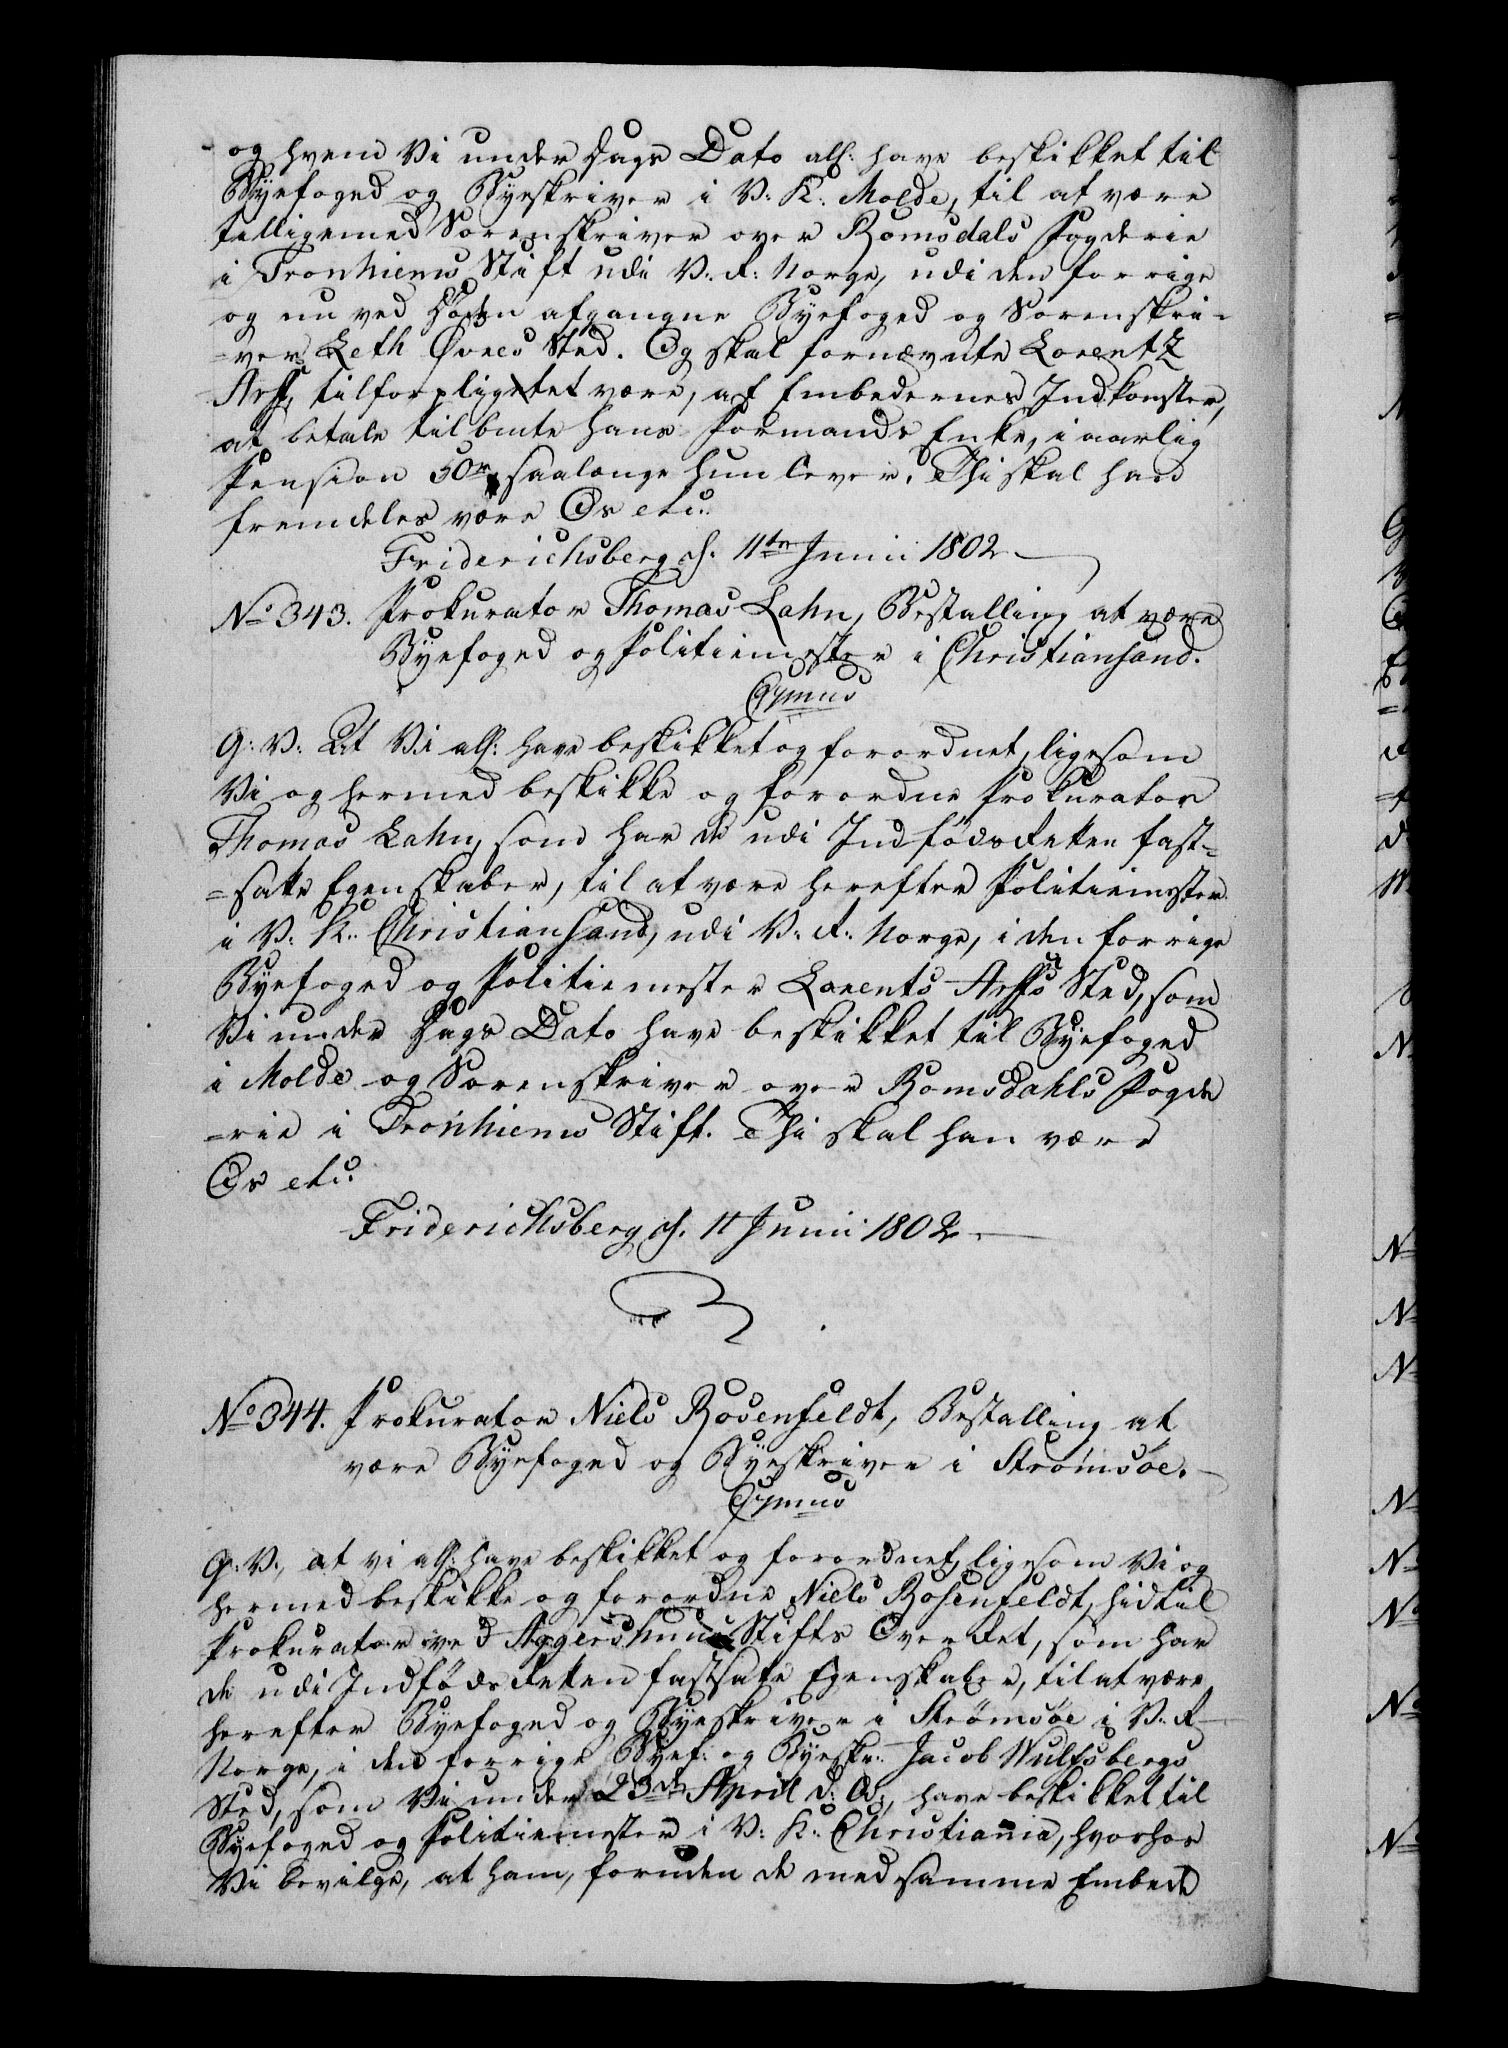 og hvem Vi under Dags Dato all: have beskikket til
Byefoged og Byeskriver i V: K: Molde, til at være
tilligemed Sorenskriver over Romsdals Fogderie
i Tronhiems Stift udi V: R: Norge, udi den forrige
og nu ved Døden afgangne Byefoged og Sorenskri-
=ver Leth Øvres Sted. Og skal fornævnte Lorentz
Arff, tilforpligtet være, af Embedernes Indkomster,
at betale til bmte hans Formands Enke, i aarlig
Pension 50 saalænge hun lever. Thi skal han
fremdeles være Os etc:
Friderichsberg d. 11te Junii 1802
No 343. Prokurator Thomas Lahn, Bestalling at være
Byefoged og Politiemester i Christiansand.
G: V: At Vi all: have beskikket og forordnet, ligesom
Vi og hermed beskikke og forordne Prokurator
Thomas Lahn, som har de udi Indfødsretten fast=
=satte Egenskaber, til at være herefter Politiemester
i V: K: Christiansand, udi V: R: Norge, i den forrige
Byefoged og Politiemester Lorents Arffs Sted, som
Vi under Dags Dato have beskikket til Byefoged
i Molde og Sorenskriver over Romsdahls Fogde
=rie i Tronhiems Stift. Thi skal han være
Os etc:
Friderichsberg d. 11 Junii 1802
No 344. Prokurator Niels Rosenfeldt, Bestalling at
være Byefoged og Byeskriver i Strømsøe.
G: V:, at vi all: have beskikket og forordnet, ligesom Vi og
hermed beskikke og forordne Niels Rosenfeldt, hidtil
Prokurator ved Aggershuus Stifts Overret, som har
de udi Indfødsretten fastsatte Egenskaber, til at være
herefter Byefoged og Byeskriver i Strømsøe i V: R
Norge, i den forrige Byef: og Byeskr: Jacob Wulfsbergs
Sted, som Vi under 23de April d: A:, have beskikket til
Byefoged og Politiemester i V: K: Christiania, hvorhos
Vi bevilge, at ham, foruden de med samme Embede